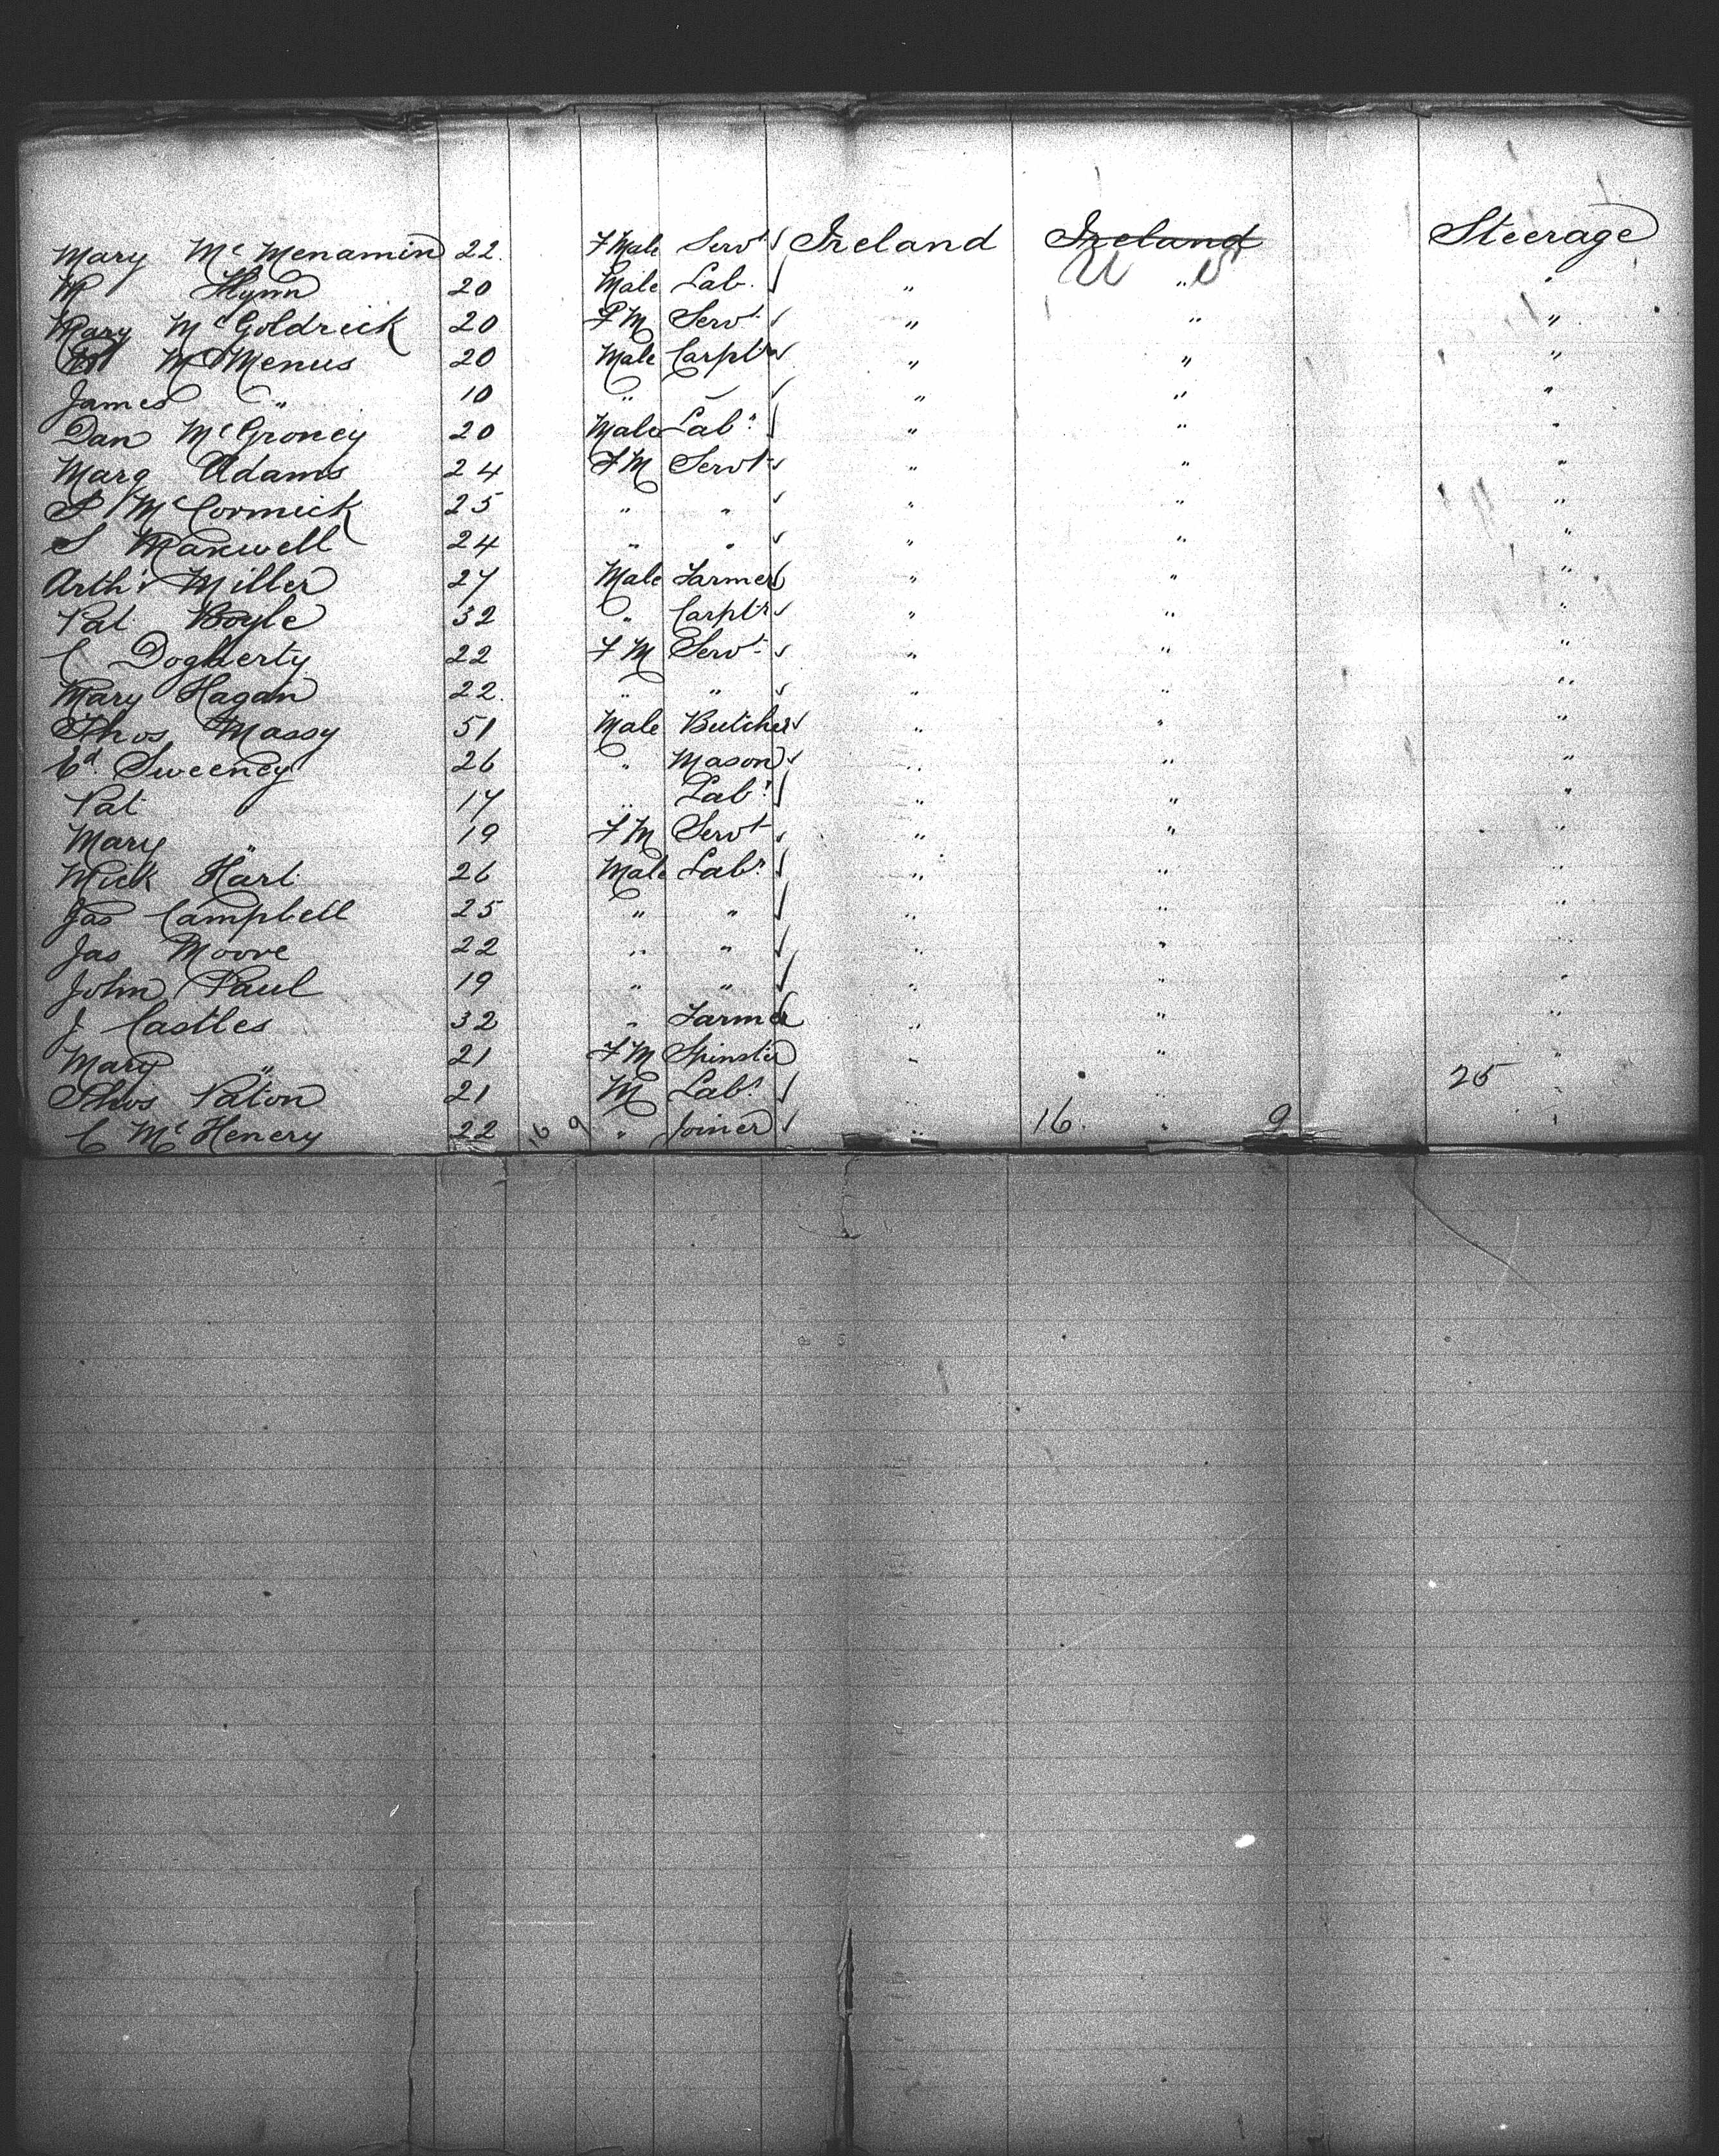 Mary McMenamin 22. FMale Servt Ireland Ireland Steerage
M Flynn 20 Male Lab. " U S " "
Mary McGoldrick 20 FM Servt " " "
McMenus 20 Male Carptr " " "
James " 10 " " " " "
Dan McGroney 20 Male Labr " " "
Marg Adams 24 FM Servt " " "
S McCormick 25 " " " " "
S Maxwell 24 " " " " "
Arthr Miller 27 Male Farmer " " "
Pat Boyle 32 " Carptr " " "
C Dogherty 22 FM Servt " " "
Mary Hagan 22. " " " " "
Thos Massy 51 Male Butcher " " "
Ed. Sweeney 26 " Mason " " "
Pat 17 " Labr " " "
Mary " 19 FM Servt " " "
Mick Hart 26 Male Labr " " "
Jas Campbell 25 " " " " "
Jas Moore 22 " " " " "
John Paul 19 " " " " "
J Castles 32 " Farmer " " "
Mary " 21 FM Spinster " " "
Thos Paton 21 M Labr " " 25 "
C McHenery 22 16 9 " Joiner " 16. " 9 "